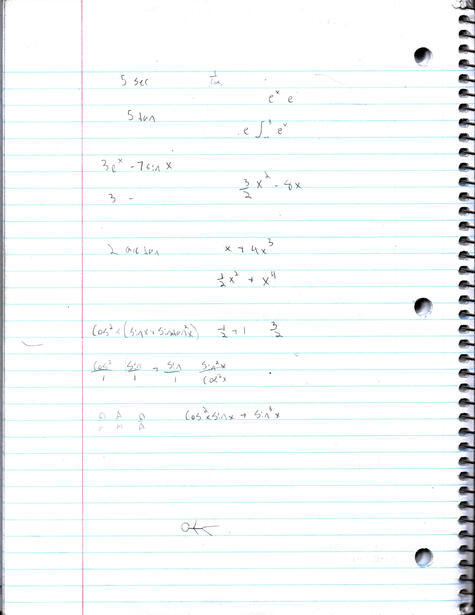 5 sec
eˣ e
5 tan
e ∫ eˣ
3eˣ - 7 sin x
3 -
3/2 x² - 8x
2 arc tan x + 4x³
1/2 x² + x⁴
Cos² x (sin x + sin x tan² x) 1/2 + 1 3/2
Cos²/1 Sin/1 + Sin/1 Sin²x/Cos²x
Cos² x sin x + sin³ x